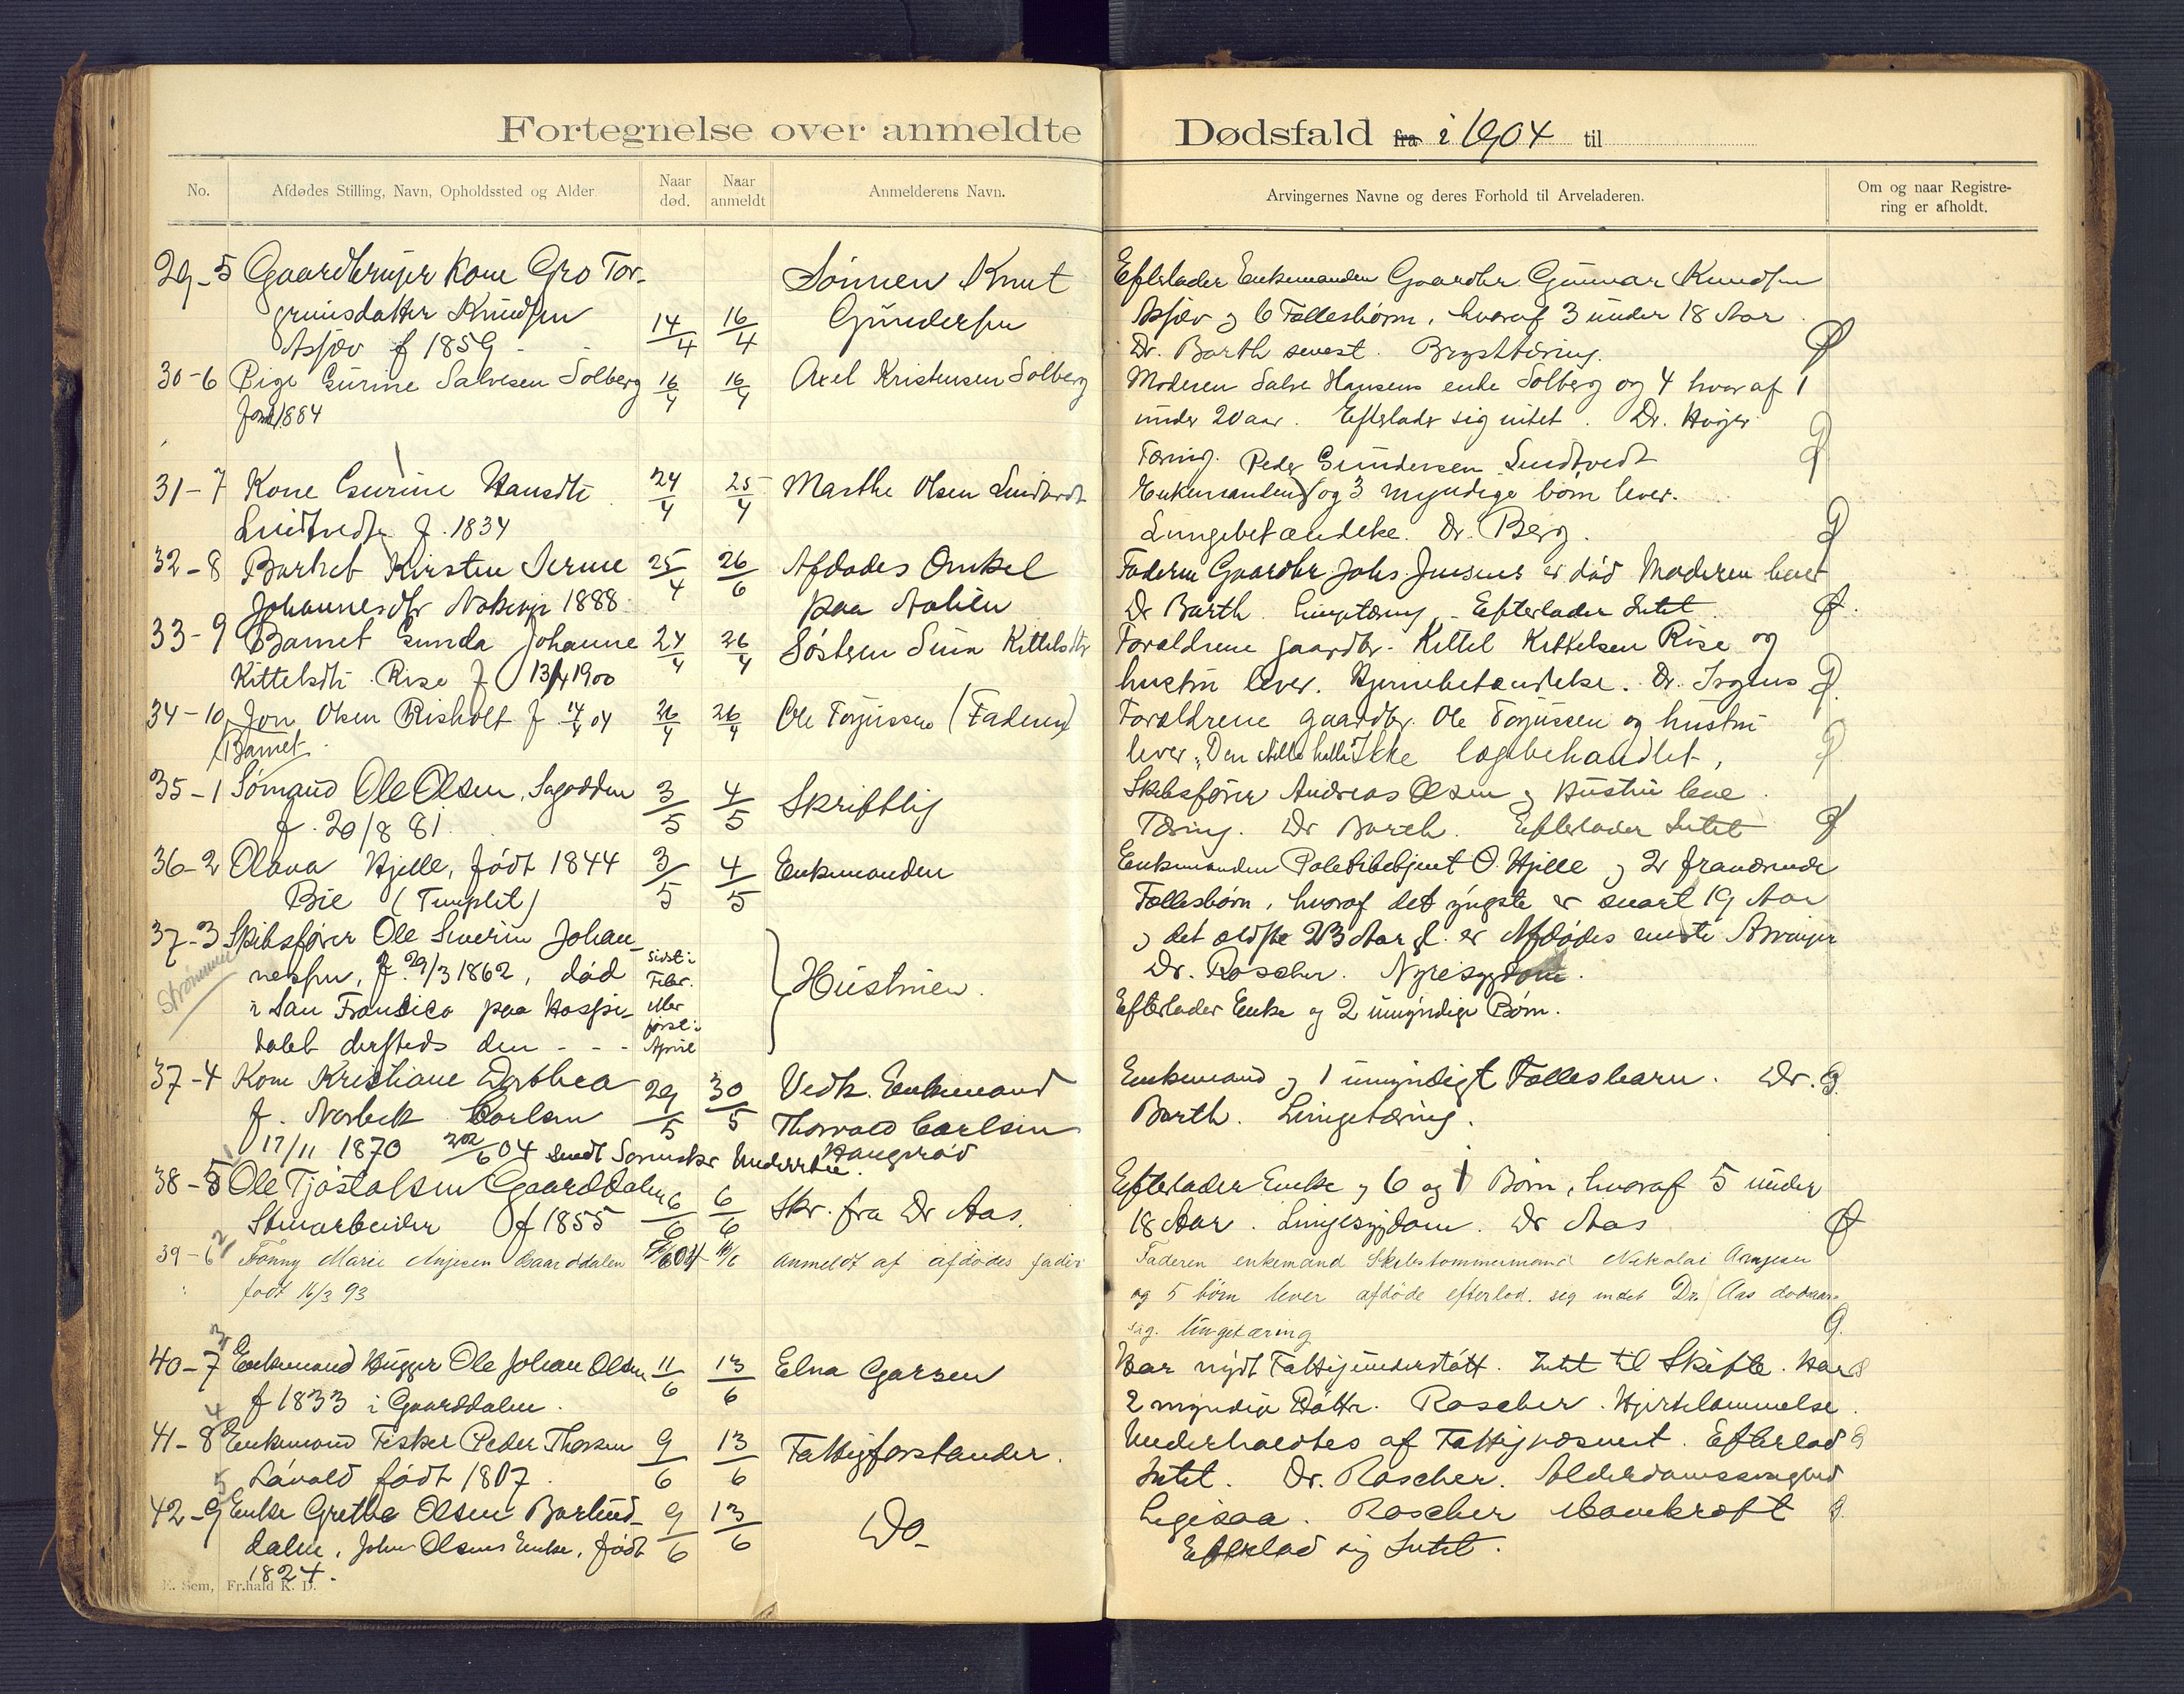 Fortegnelse over anmeldte Dødsfald fra i 1904 til
No.
Afdødes Stilling, Navn, Opholdssted og Alder.
Naar død.
Naar anmeldt
Anmelderens Navn.
Arvingernes Navne og deres Forhold til Arveladeren.
Om og naar Registre-
ring er afholdt.
29-5 Gaardbruger Kone Gro Tor- Sønnen Knut
grimsdatter Knudsen 14/4 16/4 Gundersen
Asfjæv f 1859
Efterlader Enkemanden Gaardbr. Gunnar Knudsen
Asfjæv og 6 Fællesbørn, hvoraf 3 under 18 Aar
Dr. Barth senest. Brysttæring.
30-6 Pige Gurine Salvesen Solberg 16/4 16/4 Axel Kristensen Solberg
født 1884
Moderen Salve Hansens enke Solberg og 4 hvoraf 1
under 20 aar. Efterlader sig intet. Dr. Høyer
Tæring.
31-7 Kone Gurine Hansdtr 24/4 25/4 Marthe Olsen Lindtvedt
Lindtvedt f. 1834
Peder Gundersen Lindtvedt
Enkemanden og 3 myndige børn lever.
Lungebetændelse. Dr. Berg.
32-8 Barnet Kirsten Serine 25/4 26/6 Afdødes Onkel
Johannesdtr 1888 paa
Faderen Gaardbr. Johs. Jensens er død Moderen lever
Dr Barth Lungetæring. Efterlader Intet
33-9 Barnet Gunda Johanne 24/4 26/4 Søsteren Kittelsdtr
Kittelsdtr Rise f 13/4 1900
Forældrene gaardbr. Kittel Kittelsen Rise og
hustru lever. Hjernebetændelse. Dr.
34-10 Jon Olsen Risholt f 14/4 04 26/4 26/4 Ole Torjussen (Faderen)
Barnet
Forældrene gaardbr. Ole Torjussen og hustru
lever. Ikke lægebehandlet,
35-1 Sømand Ole Olsen, Sagodden 3/5 4/5 Skriftlig
f. 20/8 81.
Skibsfører Andreas Olsen og Hustru leve
Tæring. Dr Barth. Efterlader Intet
36-2 Olava Hjelle, født 1844 3/5 4/5 Enkemanden
Bie
Enkemanden Politibetjent O. Hjelle og 2 fraværende
Fællesbørn, hvoraf det yngste er snart 19 Aar
og det ældste 23 Aar er Afdødes eneste Arvinger
Dr. Roscher. Nyresygdom.
37-3 Skibsfører Ole Severin Johan- sidst i
nessen, f. 29/3 1862, død Febr. Hustruen.
i San Francisco paa Hospi- eller
talet dersteds den - - - først i
April
Strømmen
Efterlader Enke og 2 umyndige Børn.
37-4 Kone Kristiane Dorthea 29/5 30/5 Vedk. Enkemand
f. Norbeck Carlsen Thorvald Carlsen
17/11 1870 Haugerød
Enkemand og 1 umyndigt Fællesbarn. Dr.
Barth. Lungetæring.
38-5 Ole Tjøstolsen Gaarddalen 6/6 6/6 Skr. fra Dr Aas.
Stenarbeider f 1855
Efterlader Enke og 6 og 1 Børn, hvoraf 5 under
18 Aar. Lungesygdom. Dr Aas
39-6 Fanny Marie Anjesen Gaarddalen anmeldt af afdødes fader
født 16/3 93
Faderen enkemand Skibstømmermand Nikolai Arnjesen
og 5 børn lever afdøde efterlod. sig intet Dr. Aas dødsaar-
sag. lungetæring
40-7 Enkemand Hugger Ole Johan Olsen 11/6 13/6 Elna Garsen
f 1833 i Gaarddalen.
Har nydt Fattigunderstøtt. Intet til Skifte. Har
2 myndige Døttre. Roscher. Hjertelammelse.
41-8 Enkemand Fisker Peder Thorsen 9/6 13/6 Fattigforstander.
Låvold født 1807.
Underholdtes af Fattigvæsenet. Efterlod
Intet. Dr. Roscher. Alderdomssvaghed
42-9 Enke Grethe Olsen Barlind- 9/6 13/6 Do-
dalen, John Olsens Enke, født
1824.
Ligesaa. Roscher
Efterlod sig Intet.
E. Sem, Fr.hald K. D.